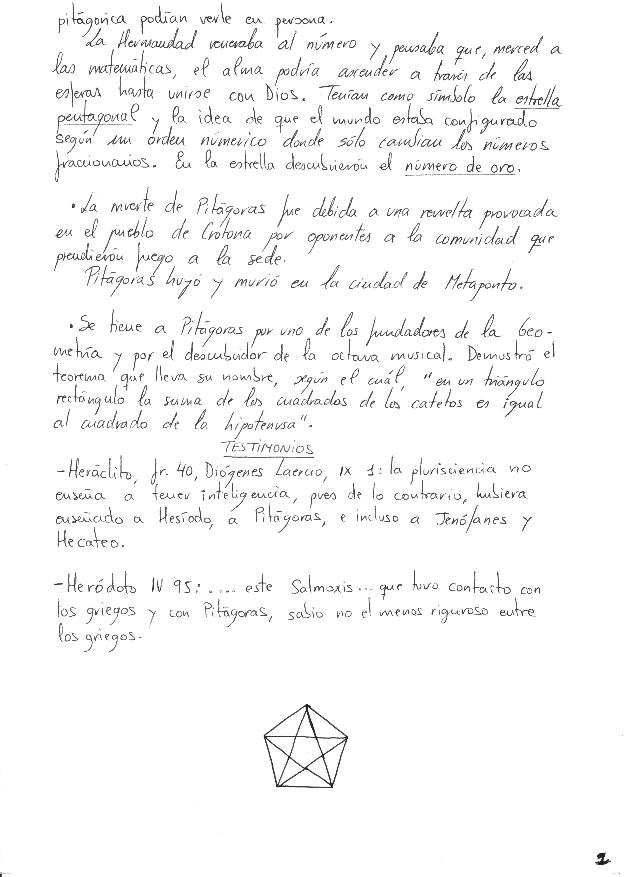 pitágorica podían verle en persona.
La Hermandad veneraba al número y pensaba que, merced a
las matemáticas, el alma podría ascender a través de las
esferas hasta unirse con Dios. Tenían como símbolo la estrella
pentagonal y la idea de que el mundo estaba configurado
según un orden númerico donde sólo cambian los números
fraccionarios. En la estrella descubrieron el número de oro.
• La muerte de Pitágoras fue debida a una revuelta provocada
en el pueblo de Crotona por oponentes a la comunidad que
prendieron fuego a la sede.
Pitágoras huyó y murió en la ciudad de Metaponto.
• Se tiene a Pitágoras por uno de los fundadores de la Geo-
metría y por el descubridor de la octava musical. Demostró el
teorema que lleva su nombre, según el cuál, "en un triángulo
rectángulo la suma de los cuadrados de los catetos es igual
al cuadrado de la hipotenusa".
TESTIMONIOS
-Heráclito, fr. 40, Diógenes Laercio, IX 1: la plurisciencia no
enseña a tener inteligencia, pues de lo contrario, hubiera
enseñado a Hesíodo, a Pitágoras, e incluso a Jenófanes y
Hecateo.
-Heródoto IV 95: .... este Salmoxis... que tuvo contacto con
los griegos y con Pitágoras, sabio no el menos riguroso entre
los griegos.